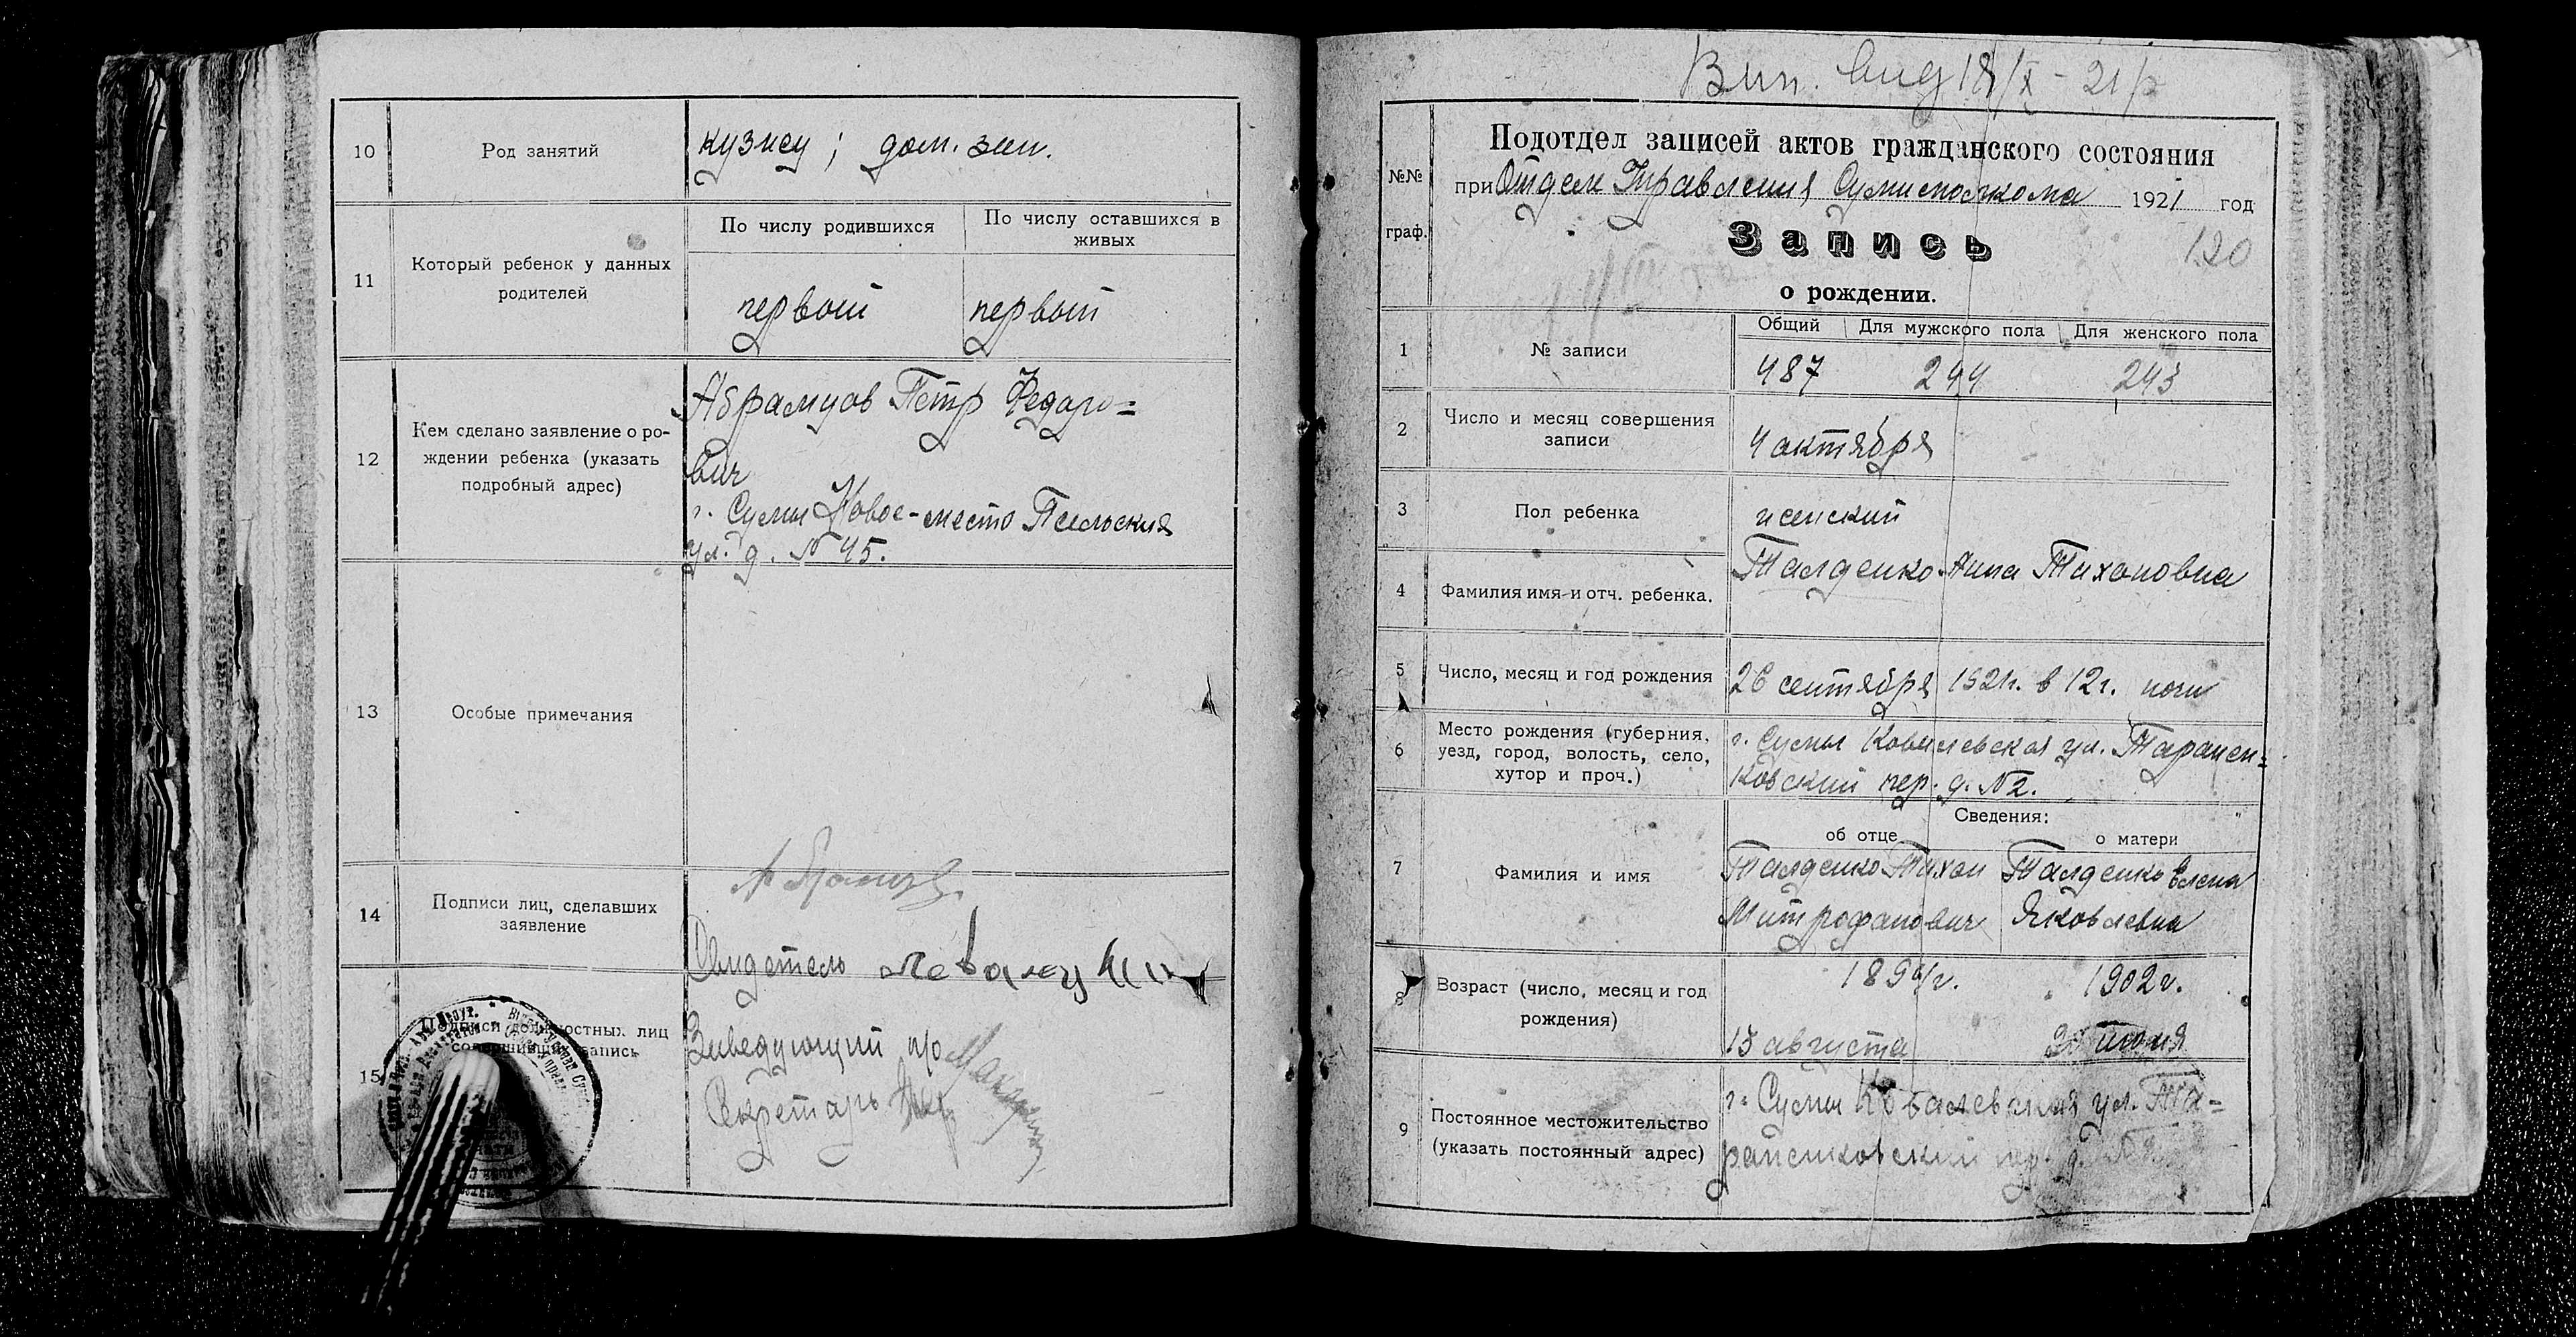 10
Род занятий
кузнец; дом. зан.
11
Который ребенок у данных
родителей
По числу родившихся
По числу оставшихся в
живых
первый
первый
12
Кем сделано заявление о ро-
ждении ребенка (указать
подробный адрес)
Абрамцов Петр Федоро=
вич
г. Сумы Новое-место Псельская
ул. д. № 45.
13
Особые примечания
14
Подписи лиц, сделавших
заявление
Свидетель
15
Подписи должностных лиц
совершивших запись
Заведующий п/о
Секретарь
18/X - 21 р
№№
граф.
Подотдел записей актов гражданского состояния
при Отделе Управления 1921 год
Запись
120
о рождении.
1
№ записи
Общий
Для мужского пола
Для женского пола
487
244
243
2
Число и месяц совершения
записи
4 октября
3
Пол ребенка
женский
4
Фамилия имя и отч. ребенка.
Талденко Нина Тихоновна
5
Число, месяц и год рождения
26 сентября 1921г. в 12г. ночи
6
Место рождения (губерния,
уезд, город, волость, село,
хутор и проч.)
г. Сумы Ковалевская ул. Таранен=
ковский пер. д. №2.
7
Фамилия и имя
Сведения:
об отце
о матери
Талденко Тихон
Митрофанович
Талденко Елена
Яковлевна
8
Возраст (число, месяц и год
рождения)
13 августа
1902г.
9
Постоянное местожительство
(указать постоянный адрес)
г. Сумы Ковалевская ул. Та=
раненковский пер. д.